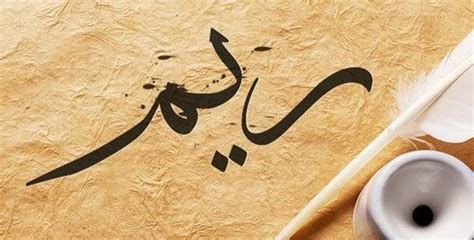 ريم